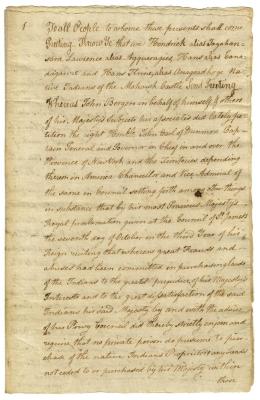 To all People to whome these presents shall come
Greeting. Know Ye that we Hendrick alias
Lawrence alias Hans alias
and Hans alias Na-
tive Indians of the Mohawk Castle Send Greeting
Whereas John Bergen on behalf of himself & others
of his Majesty's Subjects his associates did lately pe-
tition the right Honble John Earl of Dunmore Cap-
tain General and Governor in Chief in and over the
Province of New York and the Territories depending
thereon in America Chancellor and Vice Admiral of
the same in Council setting forth among other things
in substance that by his most Gracious Majesty's
Royal proclamation given at the Council of St James's
the seventh day of October in the third Year of his
Reign reciting that whereas great Frauds and
abuses had been committed in purchasing lands
of the Indians to the great prejudice of his Majesty's
Interests and to the great dissatisfaction of the said
Indians his said Majesty by and with the advice
of his Privy Council did thereby strictly enjoin and
require that no private person do presume to pur-
chase of the native Indians Proprietors any lands
not ceded to or purchased by his Majesty within
those